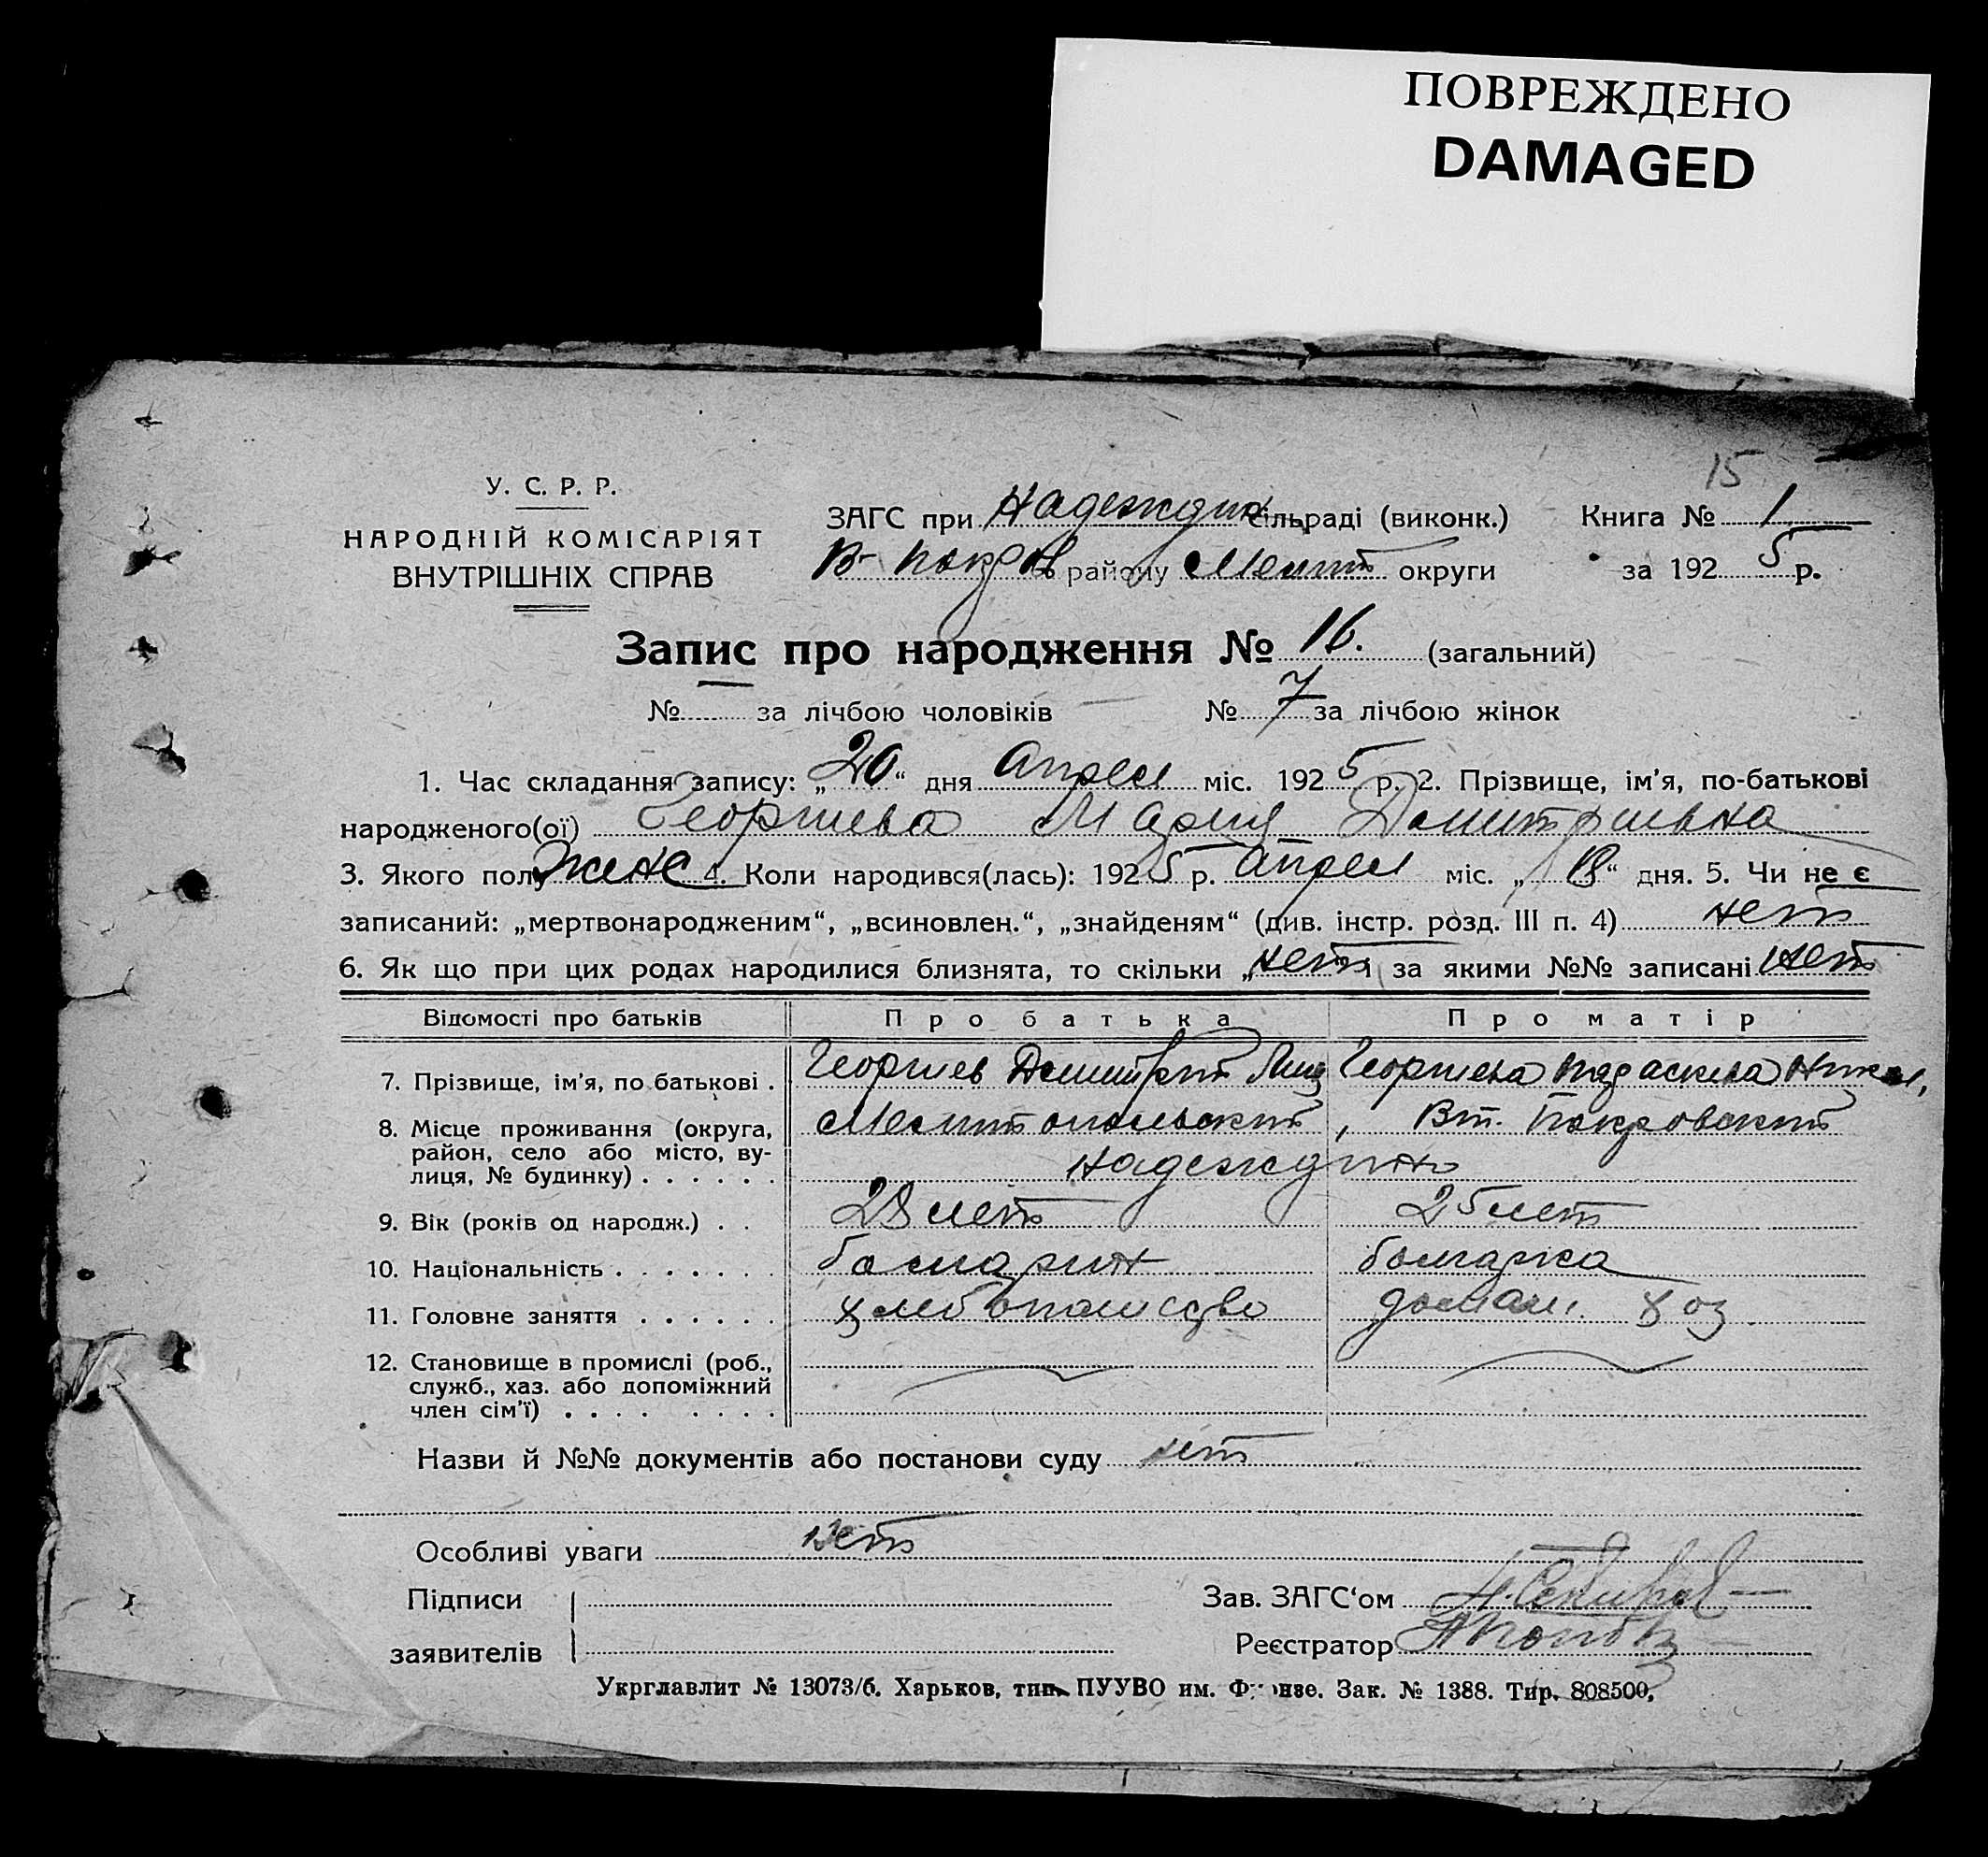 ПОВРЕЖДЕНО
DAMAGED
15
У. С. Р. Р.
НАРОДНІЙ КОМІСАРІЯТ
ВНУТРІШНІХ СПРАВ
ЗАГС при Надеждин. сільраді (виконк.)
В-Покров району Мелит округи
Книга № 1
за 1925 р.
Запис про народження № 16. (загальний)
№ — за лічбою чоловіків № 7 за лічбою жінок
1. Час складання запису: „20“ дня Апрел міс. 1925 р. 2. Прізвище, ім’я, по-батькові
народженого(ої) Георгиева Мария Дмитриевна
3. Якого полу жен 4. Коли народився(лась): 1925 р. Апрел міс. „18“ дня. 5. Чи не є
записаний: „мертвонародженим“, „всиновлен.“, „знайденям“ (див. інстр. розд. III п. 4) нет
6. Як що при цих родах народилися близнята, то скільки „нет і за якими №№ записані нет
Відомості про батьків Про батька Про матір
7. Прізвище, ім’я, по батькові . Георгиев Димитрий Георгиева Параскева Никол,
8. Місце проживання (округа, Мелитопольский, Вт. Покровский
район, село або місто, ву- Надеждино
лиця, № будинку) . . . . . .
9. Вік (років од народж.) . . 28 лет 25 лет
10. Національність . . . . . . . болгарин болгарка
11. Головне заняття . . . . . . хлебопашество домаш. хоз
12. Становище в промислі (роб.,
служб., хаз. або допоміжний
член сім’ї) . . . . . . . .
Назви й №№ документів або постанови суду нет
Особливі уваги нет
Підписи
заявителів
Зав. ЗАГС‘ом
Реєстратор
Укрглавлит № 13073/б. Харьков, тип. ПУУВО им. Фрунзе. Зак. № 1388. Тир. 808500.